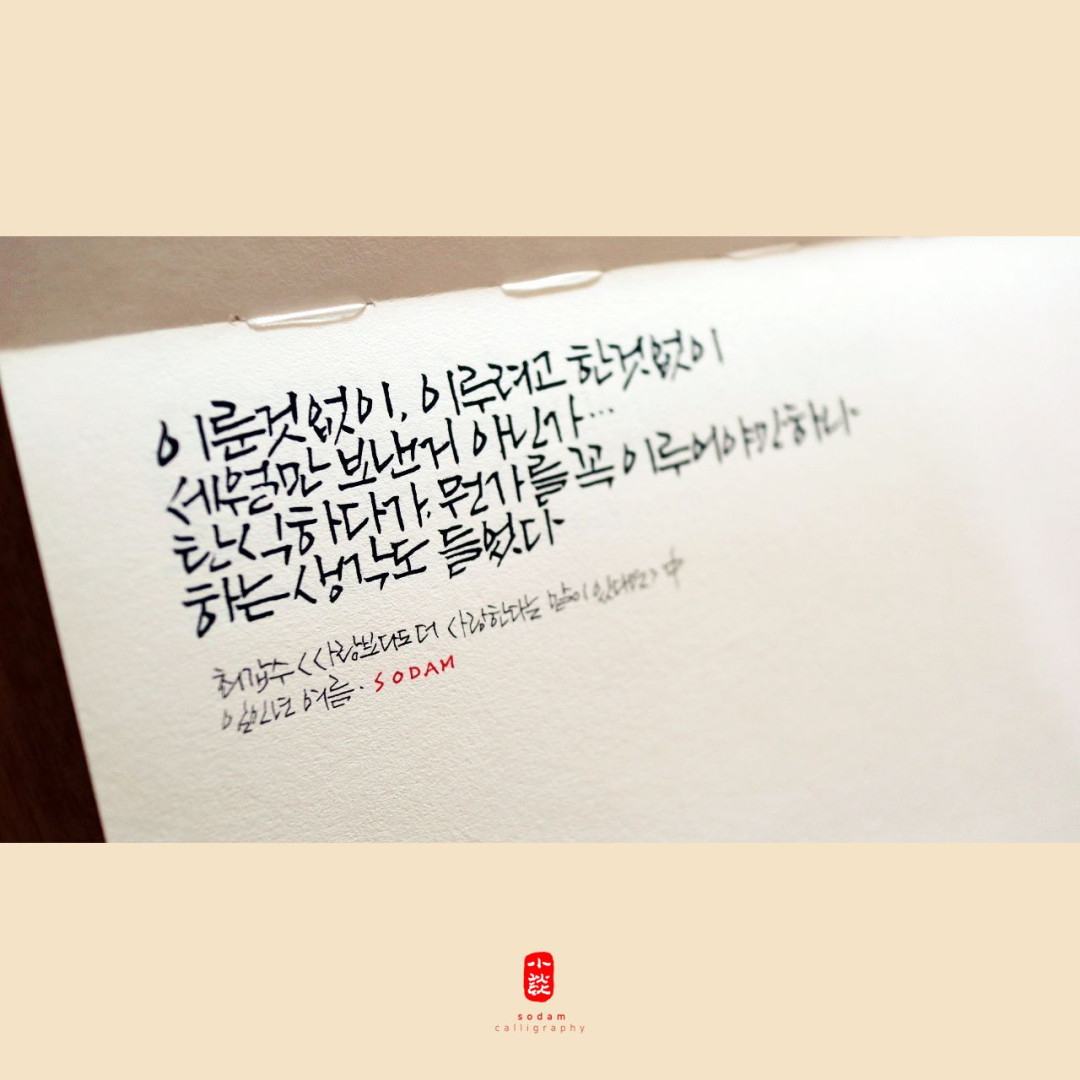 이룬것 없이, 이루려고 한것 없이
세월만 보낸거 아닌가...
탄식하다가, 뭔가를 꼭 이루어야만 하나.
하는 생각도 들었다.
최갑수 <<사랑보다도 더 사랑한다는 말이 있다면> 中
여름. SODAM
小談
sodam
calligraphy